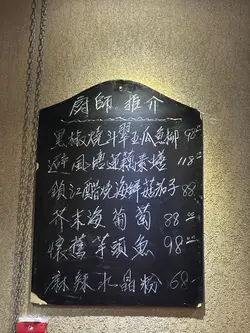 廚師推介
黑椒燒汁翠玉瓜魚柳 98
避風塘蓮藕素 118
鎮江醋燒海鮮茄子 88
芥末海葡萄 88
懷舊芋頭魚 98
麻辣水晶粉 68